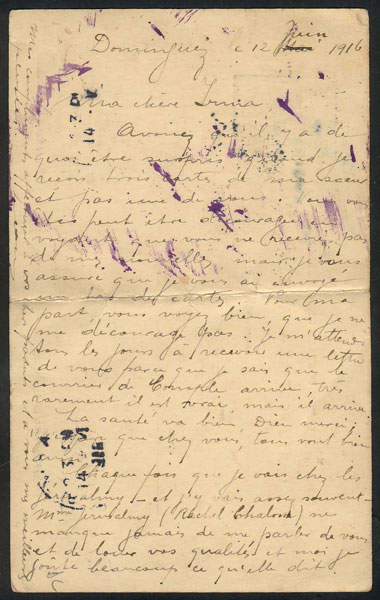 Dominguez le 12 Juin 1916
Ma chère Irma
Avouez qu'il y a de
quoi être surpris quand je
reçois trois cartes de ma soeur
et pas une de vous. ou vous
êtes peut être découragée en
voyant que vous ne recevez pas
de mes nouvelles, mais je vous
assure que je vous ai envoyé
un tas de cartes. Pour ma
part, vous voyez bien que je ne
me décourage pas. Je m'attends
tous les jours à recevoir une lettre
de vous parce que je sais que le
courrier de Consple arrive, très
rarement il est vrai mais il arrive.
La santé va bien, Dieu merci,
que chez vous, tous vont bien
aussi. Chaque fois que je vais chez les
Jerusalmy - et j'y vais assez souvent -
Mme Jerusalmy (Rachel Chalom) ne
manque jamais de me parler de vous
et de toutes vos qualités et moi je
goûte beaucoup ce qu'elle dit.